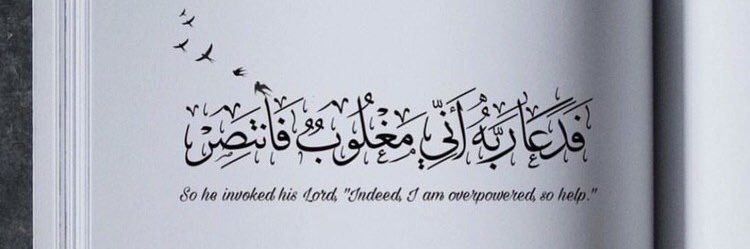 فَدَعَا رَبَّهُ أَنِّي مَغْلُوبٌ فَانتَصِرْ
So he invoked his Lord, "Indeed, I am overpowered, so help."